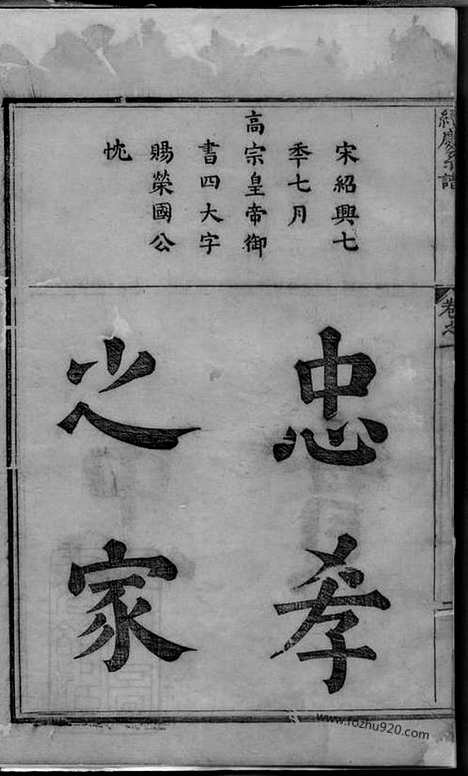 宋紹興七
秊七月
高宗皇帝御
書四大字
賜榮國公
忱
忠孝
之家
慶宗譜
卷之
www.fozhu920.com